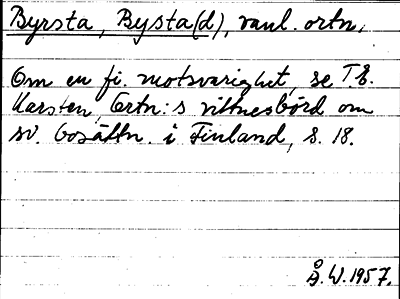 Byrsta, Bysta(d), vanl. ortn.
Om en fi. motsvarighet, se T.E.
Karsten, Ortn:s vittnesbörd om
sv. bosättn. i Finland, s. 18.
Å.W.1957.